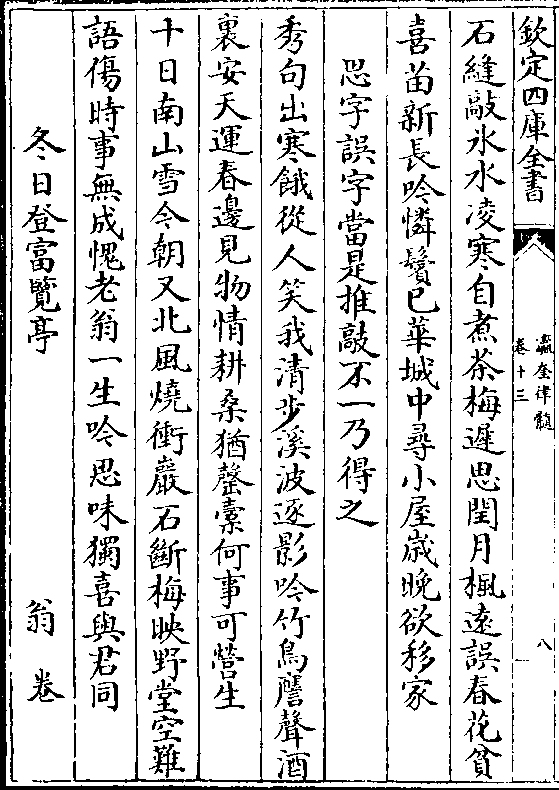 欽定四庫全書
瀛奎律髓
卷十三
八
石縫敲氷水凌寒自煮茶梅遲思閏月楓遠誤春花貧
喜苗新長吟憐鬢已華城中尋小屋嵗晚欲移家
思字誤字當是推敲不一乃得之
秀句出寒餓從人笑我清步溪波逐影吟竹鳥譍聲酒
裏安天運春邊見物情耕桑猶罄橐何事可營生
十日南山雪今朝又北風燒衝巖石斷梅映野堂空難
語傷時事無成愧老翁一生吟思味獨喜與君同
冬日登富覽亭 翁卷